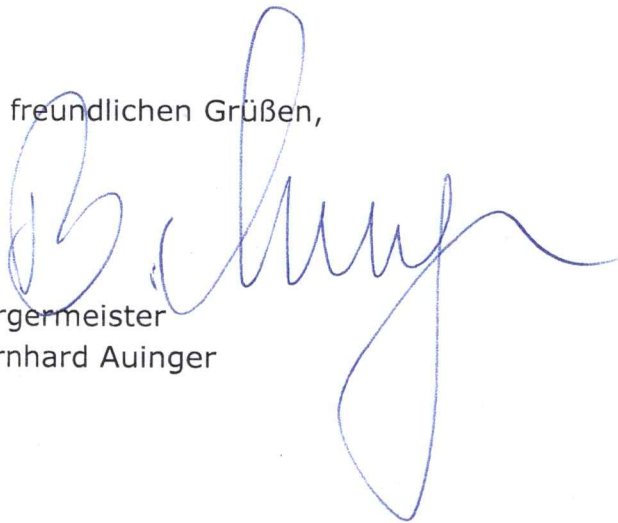 freundlichen Grüßen,
B. Auinger
rgermeister
rnhard Auinger